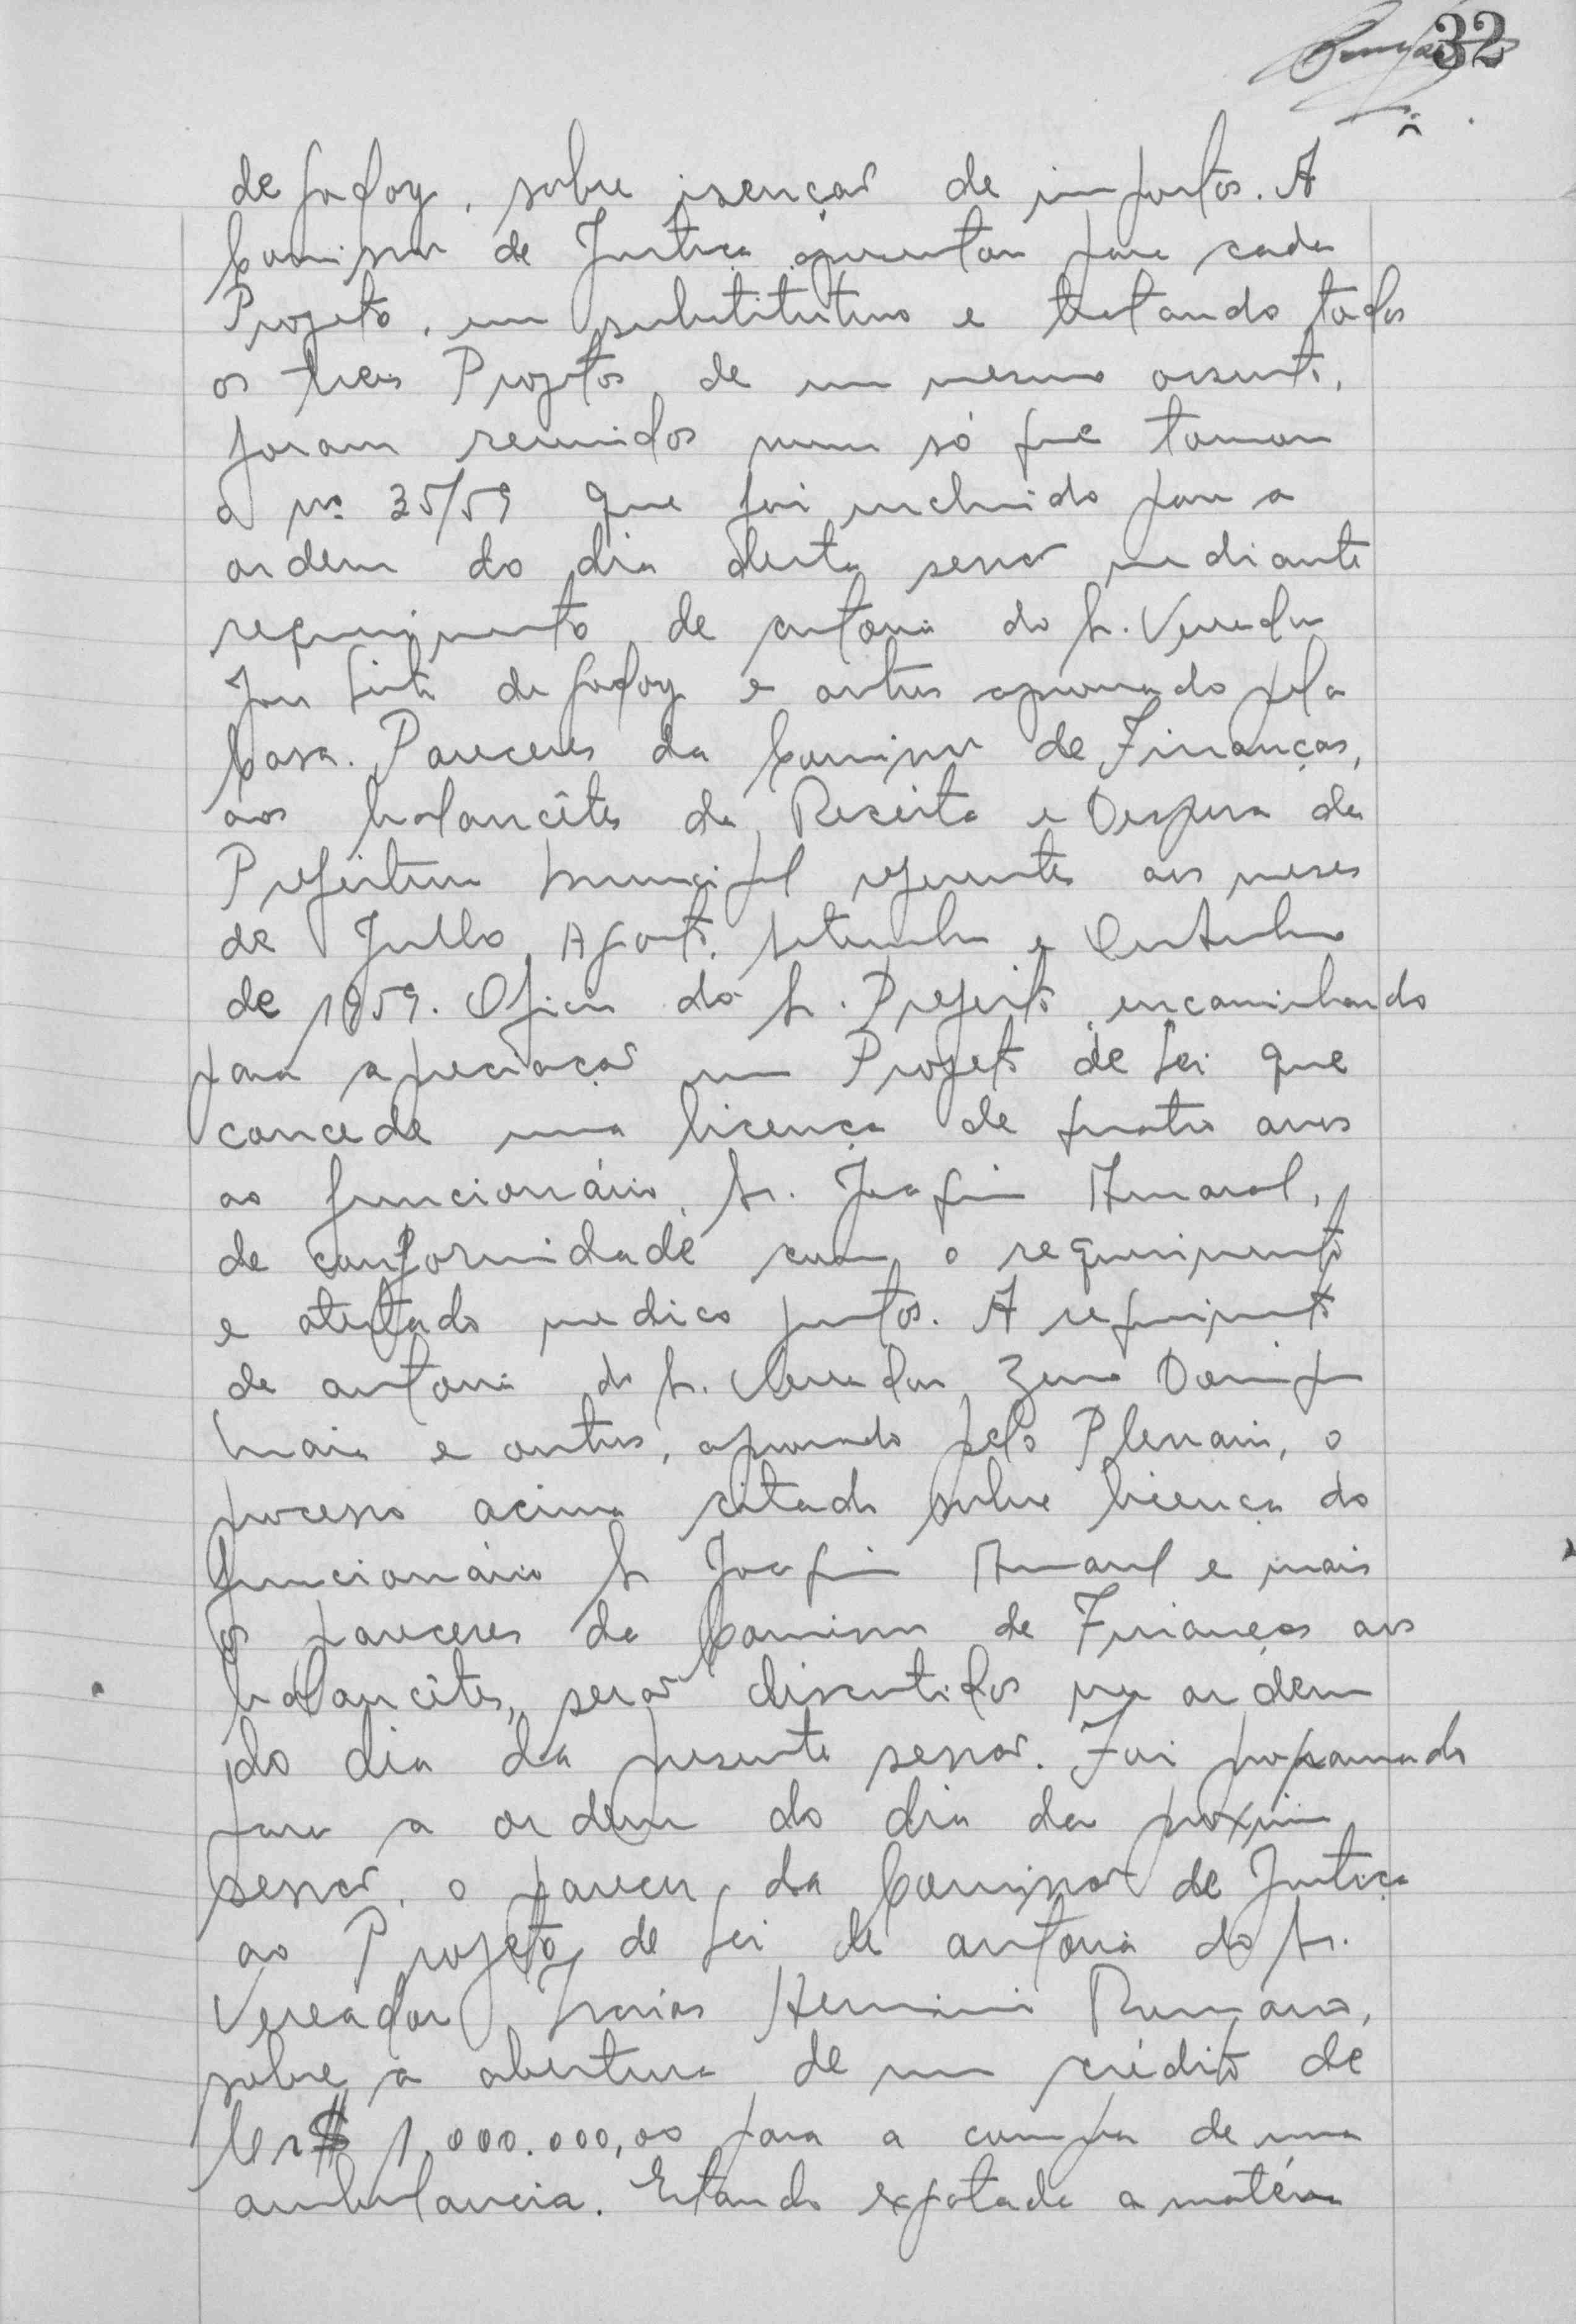 32
de Godoy, sobre isenção de impostos. A
Comissão de Justiça apresentou para cada
Projeto, um substitutivo e tratando todos
os tres Projetos de um mesmo assunto,
foram reunidos num só que tomou
o nº 35/59 que foi incluido para a
ordem do dia desta sessão mediante
requerimento de autoria do Sr. Vereador
José Leite de Godoy e outros aprovado pela
Casa. Pareceres da Comissão de Finanças,
aos balancêtes da Receita e Despesa da
Prefeitura Municipal referentes aos meses
de Julho, Agosto, Setembro e Outubro
de 1959. Oficio do Sr. Prefeito, encaminhando
para apreciação um Projeto de Lei que
concede uma licença de quatro anos
ao funcionário, Sr. Joaquim Amaral,
de conformidade com o requerimento
e atestado medico juntos. A requerimento
de autoria do Sr. Vereador Zeno
Maia e outros, aprovado pelo Plenario, o
processo acima citado sobre licença do
funcionário Sr Joaquim Amaral e mais
os pareceres da Comissão de Finanças aos
balancêtes, serão discutidos na ordem
do dia da presente sessão. Foi programado
para a ordem do dia da proxima
sessão, o parecer da Comissão de Justiça
ao Projeto de Lei de autoria do Sr.
Vereador Isaias Herminio Romano,
sobre a abertura de um crédito de
Cr$ 1.000.000,00 para a compra de uma
ambulancia. Estando exgotada a matéria